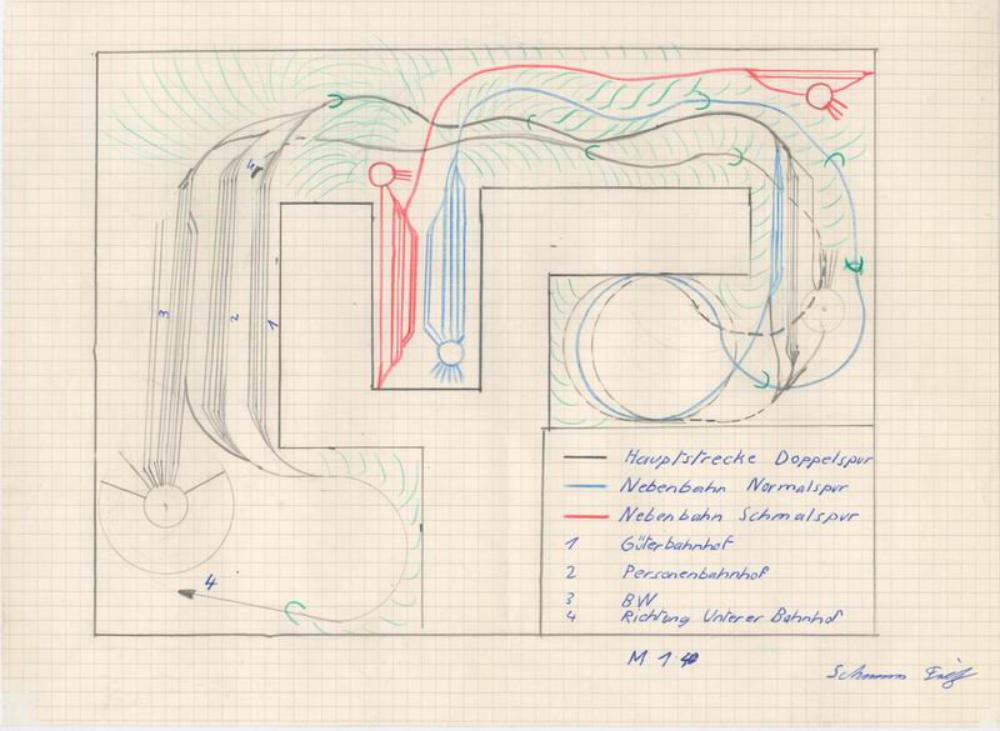 3
2
1
4
Hauptstrecke Doppelspur
Nebenbahn Normalspur
Nebenbahn Schmalspur
1 Güterbahnhof
2 Personenbahnhof
3 BW
4 Richtung Unterer Bahnhof
M 1: